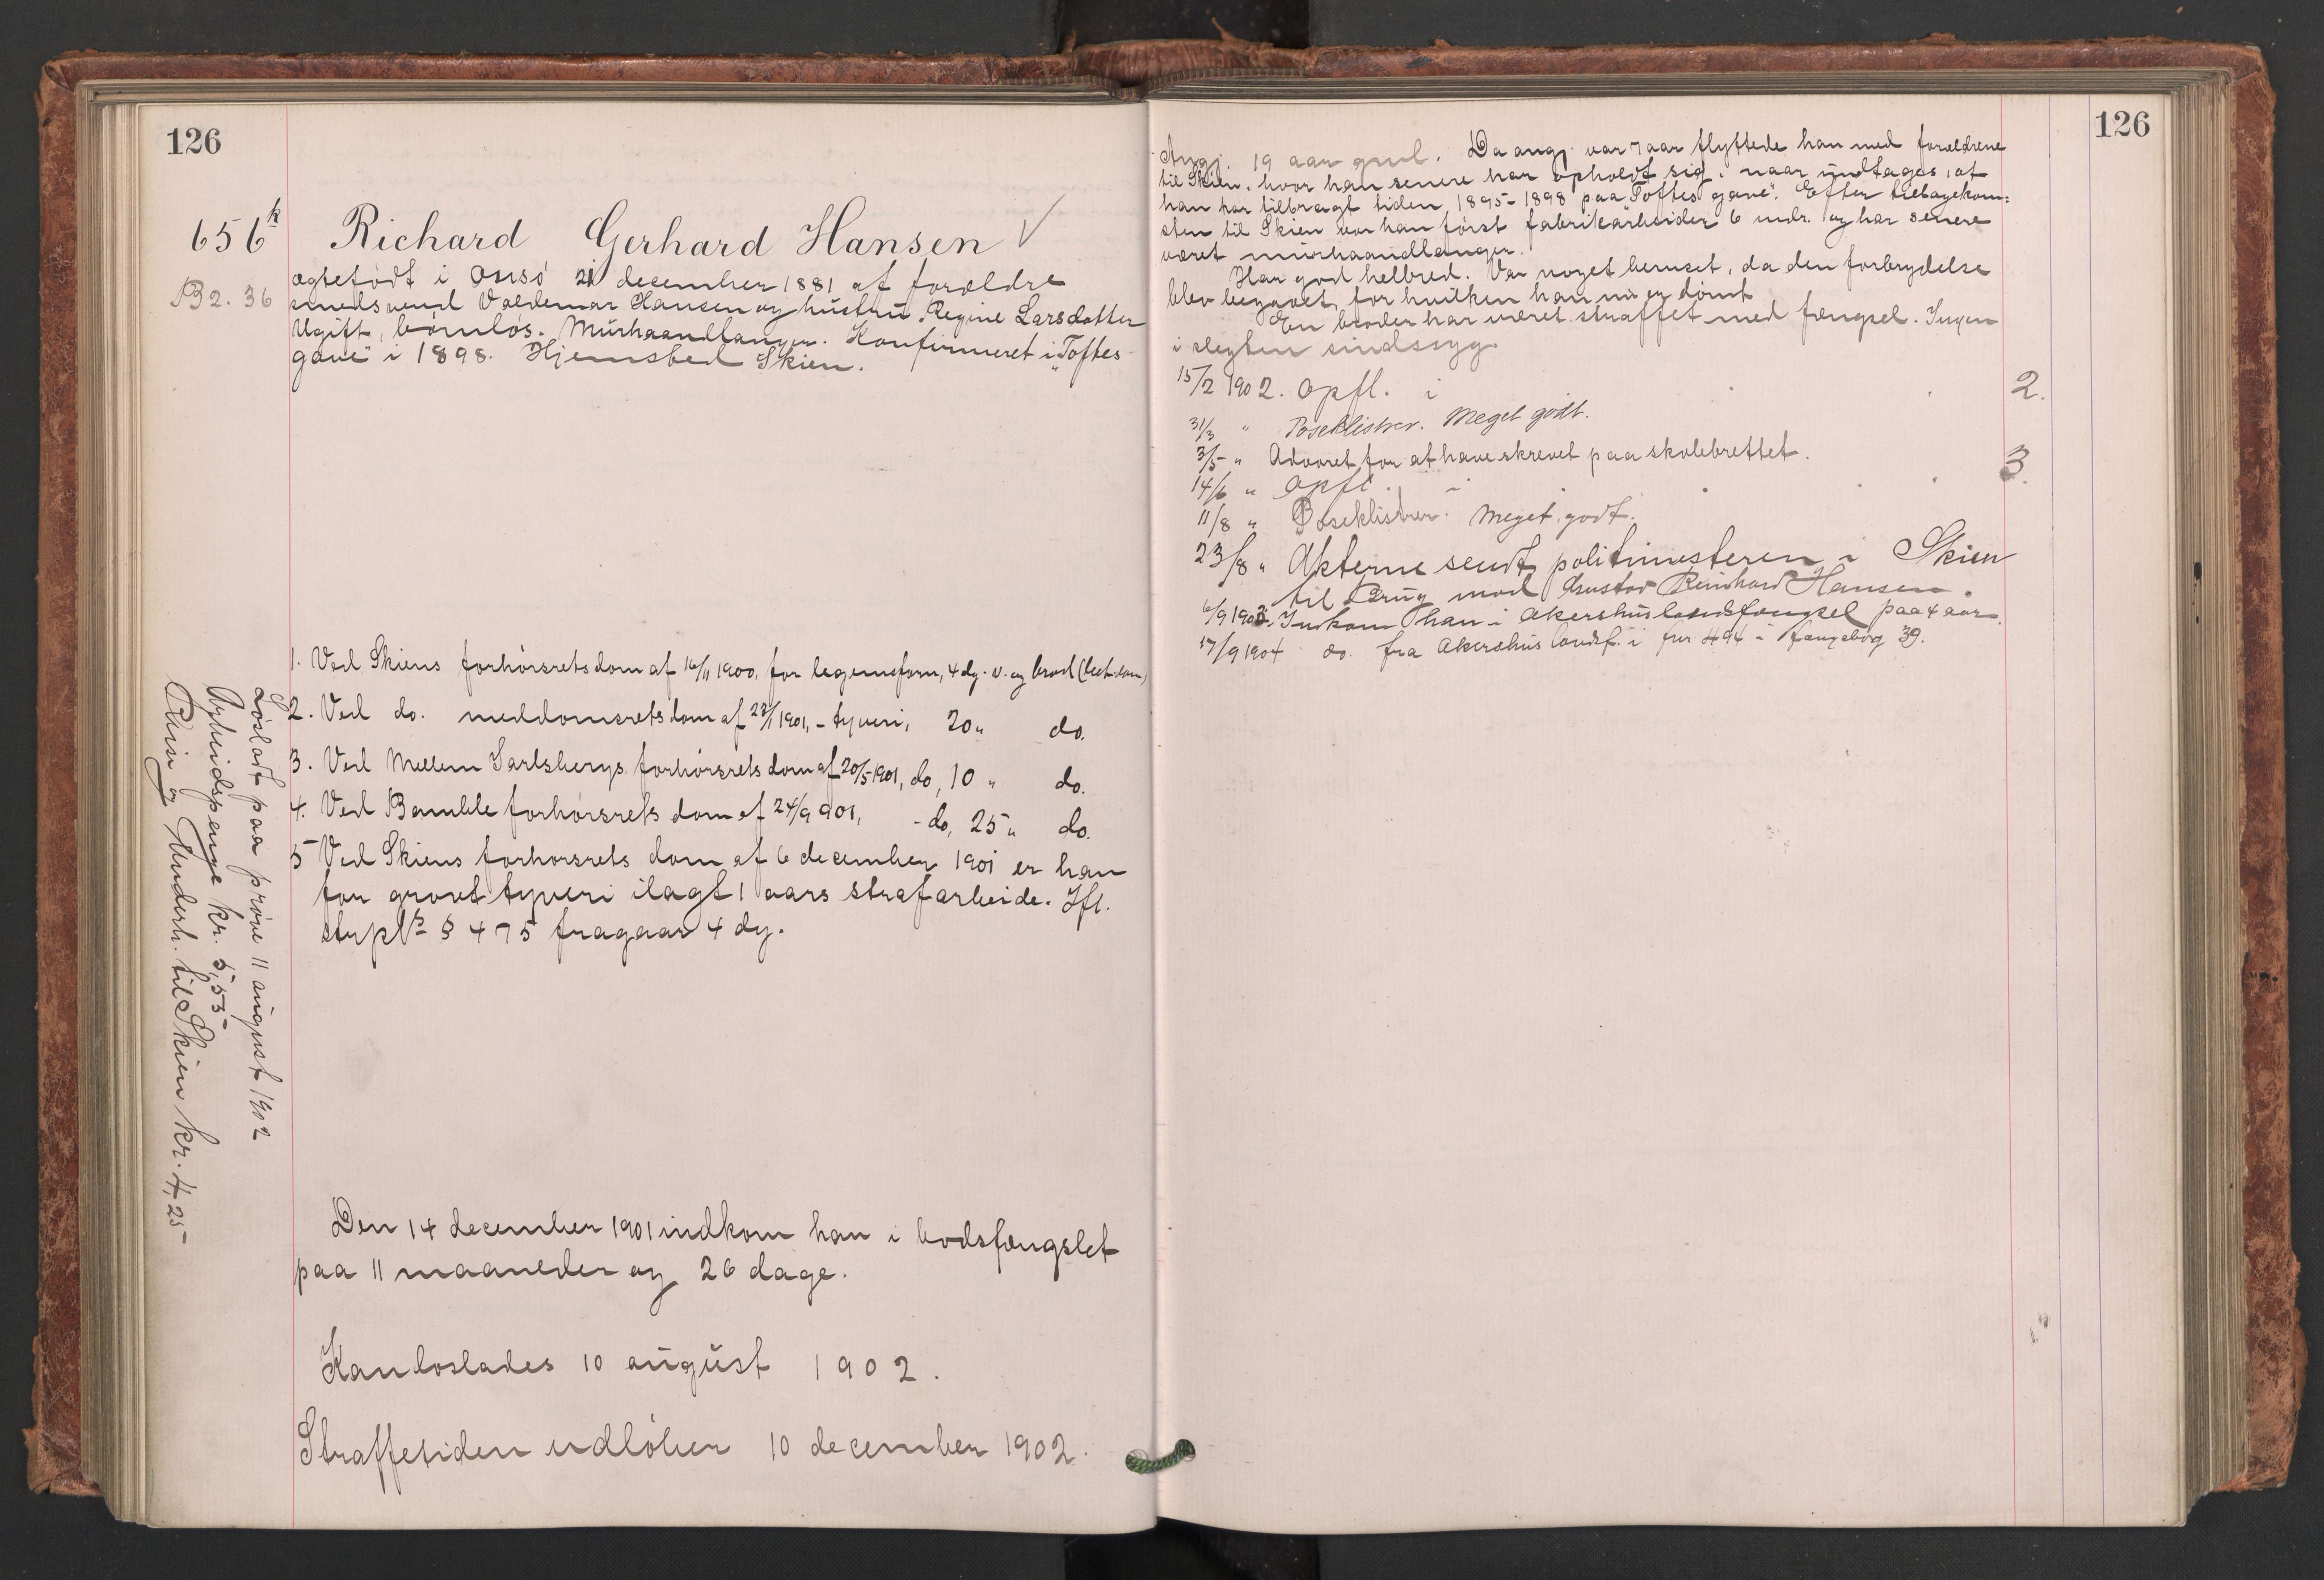 126
656k
Richard Gerhard Hansen √
B2. 36
ægtefødt i Onsø 21 december 1881 af forældre
smedsvend Valdemar Hansen og hustru Regine Larsdatter
Ugift, børnløs. Murhaandlanger. Konfirmeret i "Toftes
gave" i 1898. Hjemsted Skien.
1. Ved Skiens forhørsretsdom af 16/11 1900, for legemsforn, 4 dg. v. og brød
2. Ved do. meddomsretsdom af 1901, - tyveri, 20 " do.
3. Ved Mellem Jarlsbergs forhørsretsdom af 20/5 1901, do, 10 " do.
4. Ved Bamble forhørsrets dom af 24/9 901, - do, 25 " do.
5 Ved Skiens forhørsrets dom af 6 december 1901 er han
for grovt tyveri ilagt 1 aars strafarbeide. Ifl.
§ 475 fragaar 4 dg.
Løsladt paa prøve 11 august 1902
Arbeidspenge kr. 5,53
Reise og Underh. til Skien kr. 4,25
Den 14 december 1901 indkom han i bodsfængslet
paa 11 maaneder og 26 dage.
Kan løslades 10 august 1902.
Straffetiden udløber 10 december 1902.
126
Angj. 19 aar gml. Da angj. var 7 aar flyttede han med forældrene
til Skien, hvor han senere har opholdt sig, naar undtages, at
han har tilbragt tiden 1895-1898 paa "Toftes gave". Efter tilbagekom=
sten til Skien var han først fabrikarbeider 6 mdr. og har senere
været murhaandlanger.
Har god helbred. Var noget beruset, da den forbrydelse
blev begaaet, for hvilken han nu er dømt
En broder har været straffet med fængsel. Ingen
i slegten sindssyg.
15/2 1902. Opfl. i 2.
31/3 " Poseklistrer. Meget godt.
3/5 " Advaret for at have skrevet paa skolebrettet.
14/6 " Opfl. i 3.
11/8 " Poseklistrer. Meget godt.
23/8 " Akterne sendt politimesteren i Skien
til Brug mod Gustav Reinhard Hansen.
6/9 1902. Indkom han i Akershus landsfængsel paa 4 aar.
17/9 1904 do. fra Akershus landsf. i fnr 494 i fangebog 39.